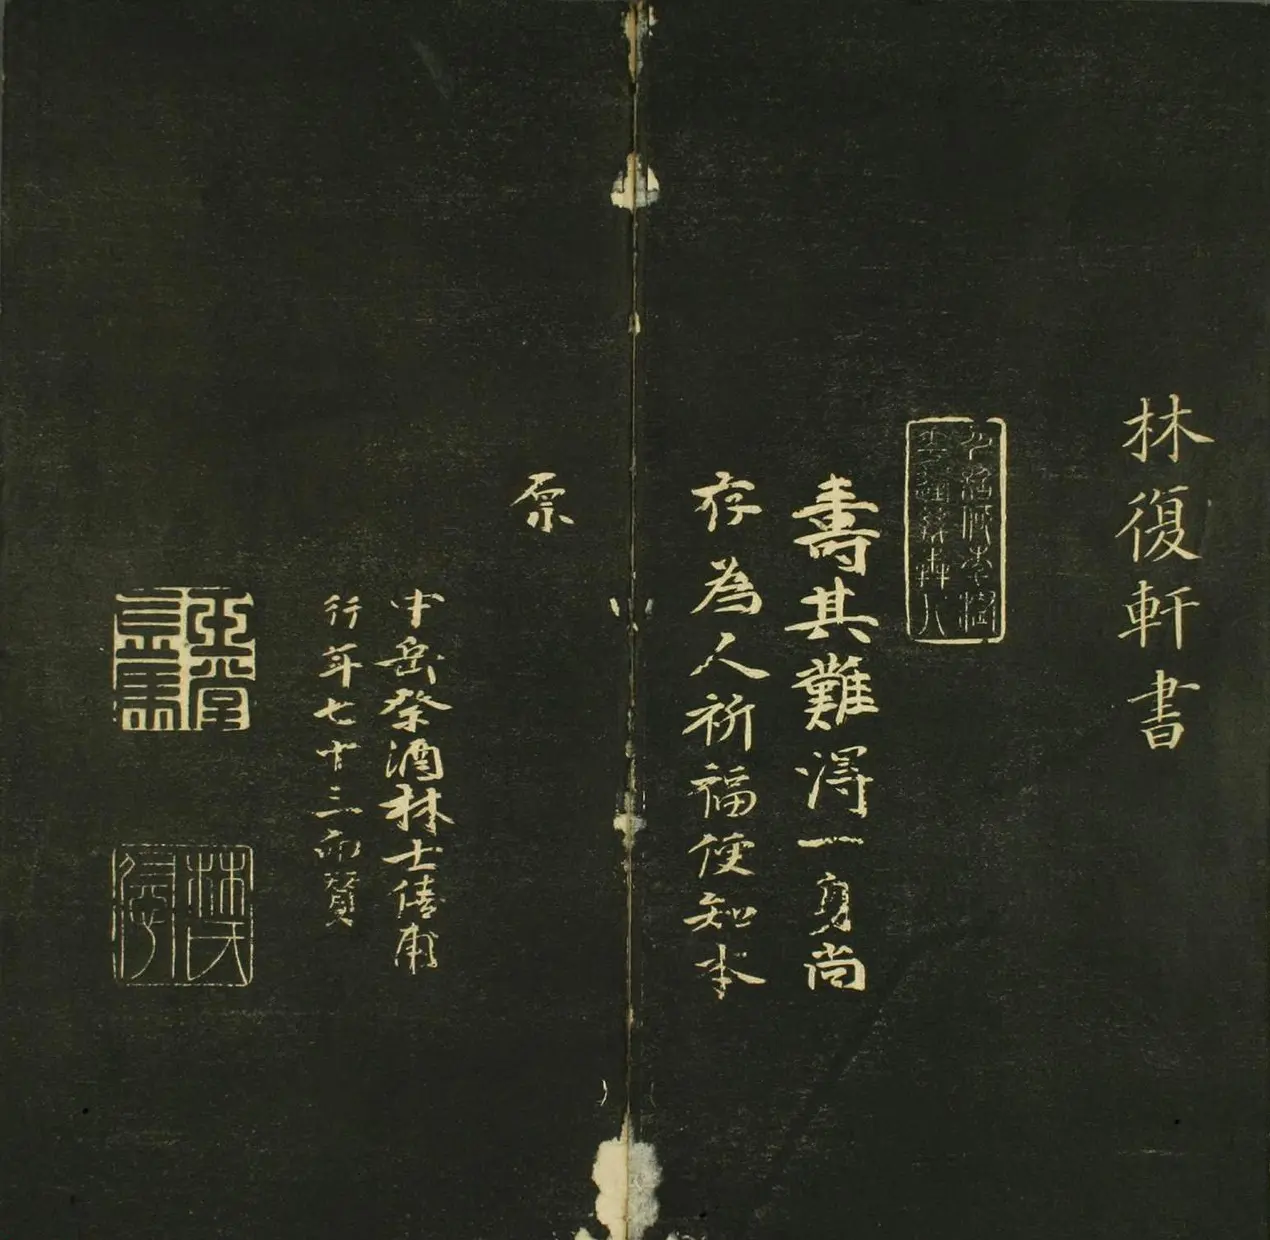 林復軒書
壽其難得一身尚
存為人祈福便知本
原
中岳祭酒林士倩甫
行年七十三而贊
林氏